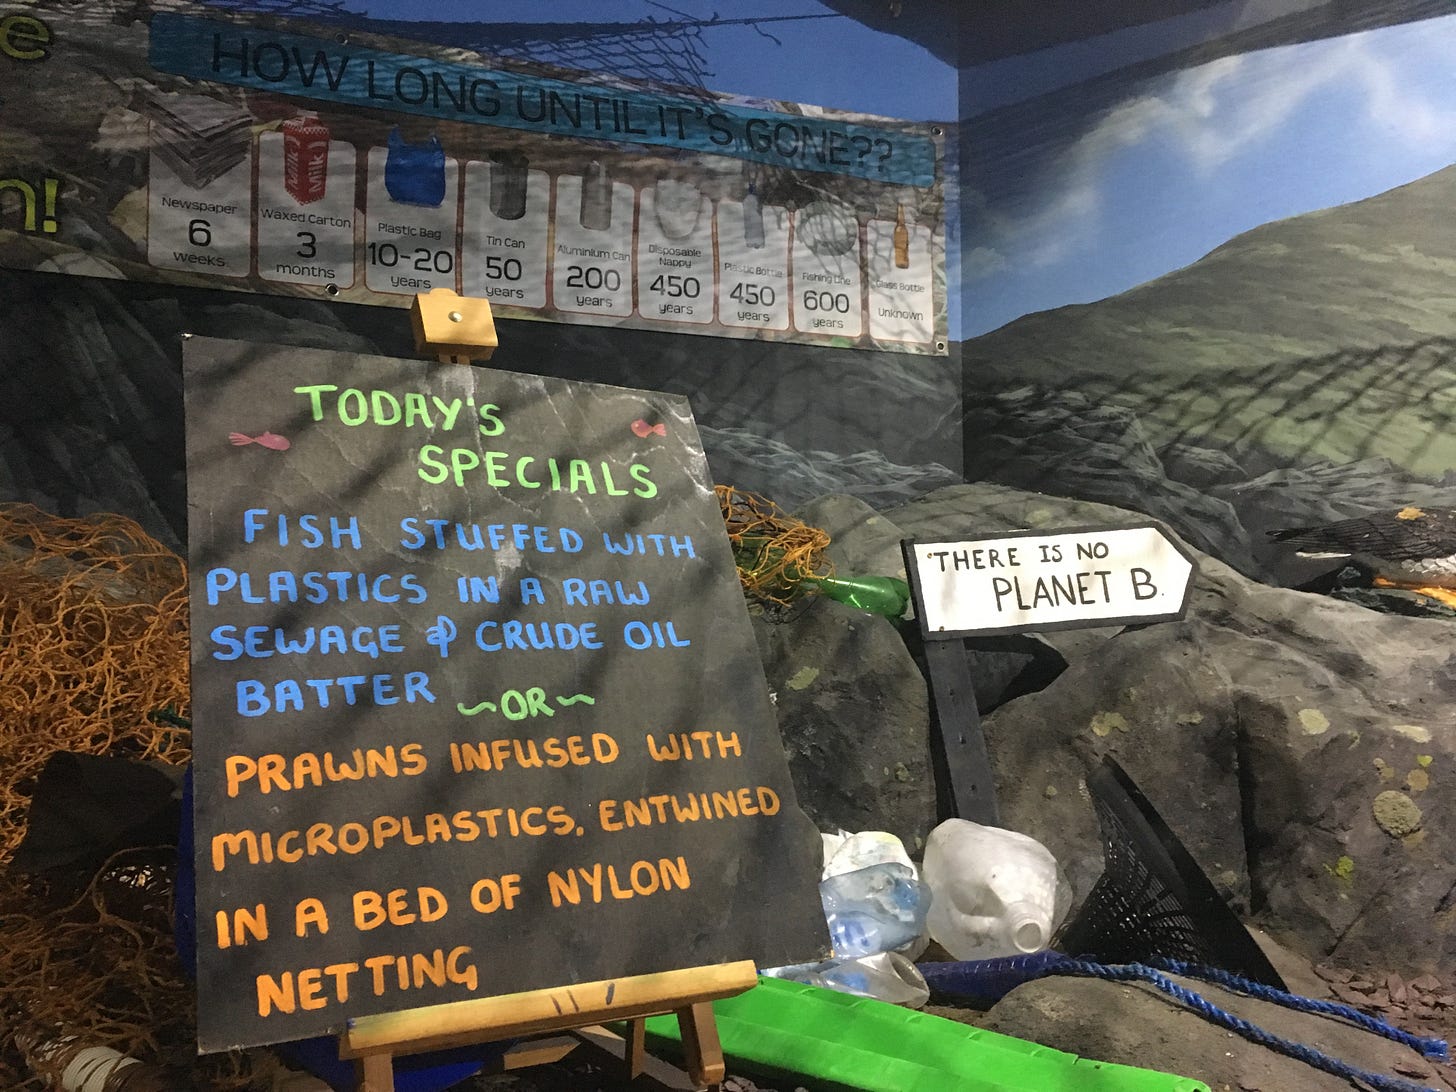 e
n!
HOW LONG UNTIL IT'S GONE??
Newspaper
6
weeks
Milk
Milk
Waxed Carton
3
months
Plastic Bag
10-20
years
Tin Can
50
years
Aluminium Can
200
years
Disposable
Nappy
450
years
Plastic Bottle
450
years
Fishing Line
600
years
Glass Bottle
Unknown
TODAY'S
SPECIALS
FISH STUFFED WITH
PLASTICS IN A RAW
SEWAGE & CRUDE OIL
BATTER
~OR~
PRAWNS INFUSED WITH
MICROPLASTICS, ENTWINED
IN A BED OF NYLON
NETTING
'THERE IS NO
PLANET B.